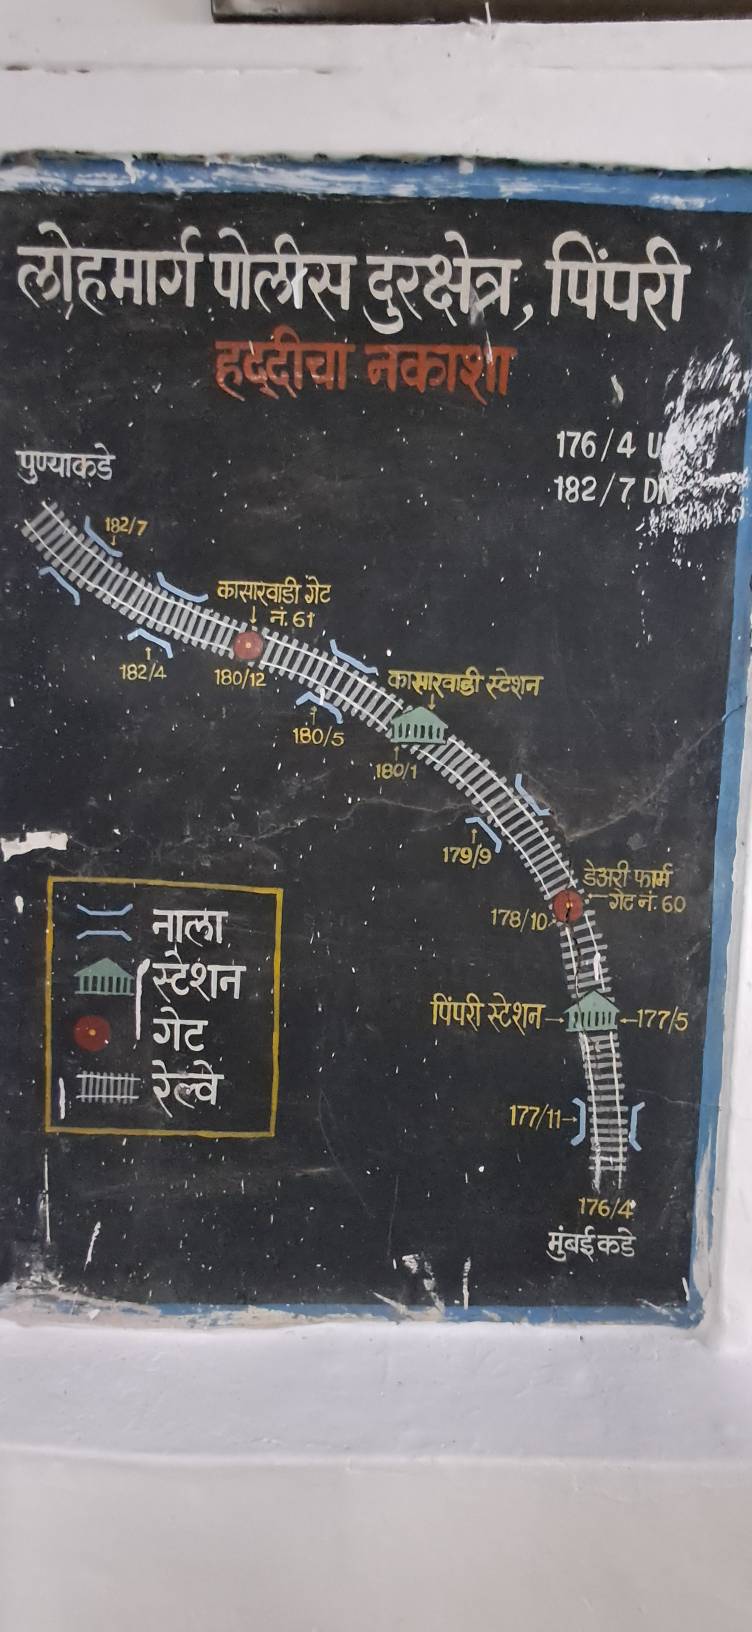 लोहमार्ग पोलीस दुरक्षेत्र, पिंपरी
हद्दीचा नकाशा
176/4 U
182/7 DN
पुण्याकडे
182/7
कासारवाडी गेट
नं. 61
182/4
180/12
कासारवाडी स्टेशन
180/5
180/1
179/9
डेअरी फार्म
गेट नं. 60
178/10
नाला
स्टेशन
गेट
रेल्वे
पिंपरी स्टेशन
177/5
177/11
176/4
मुंबई कडे